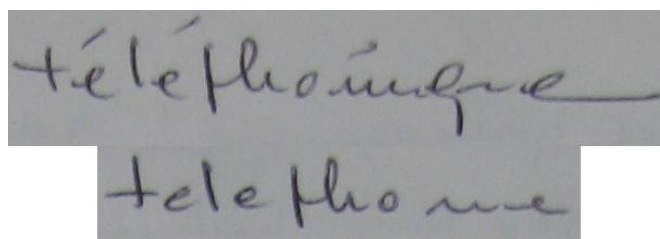 téléphonique
telephone